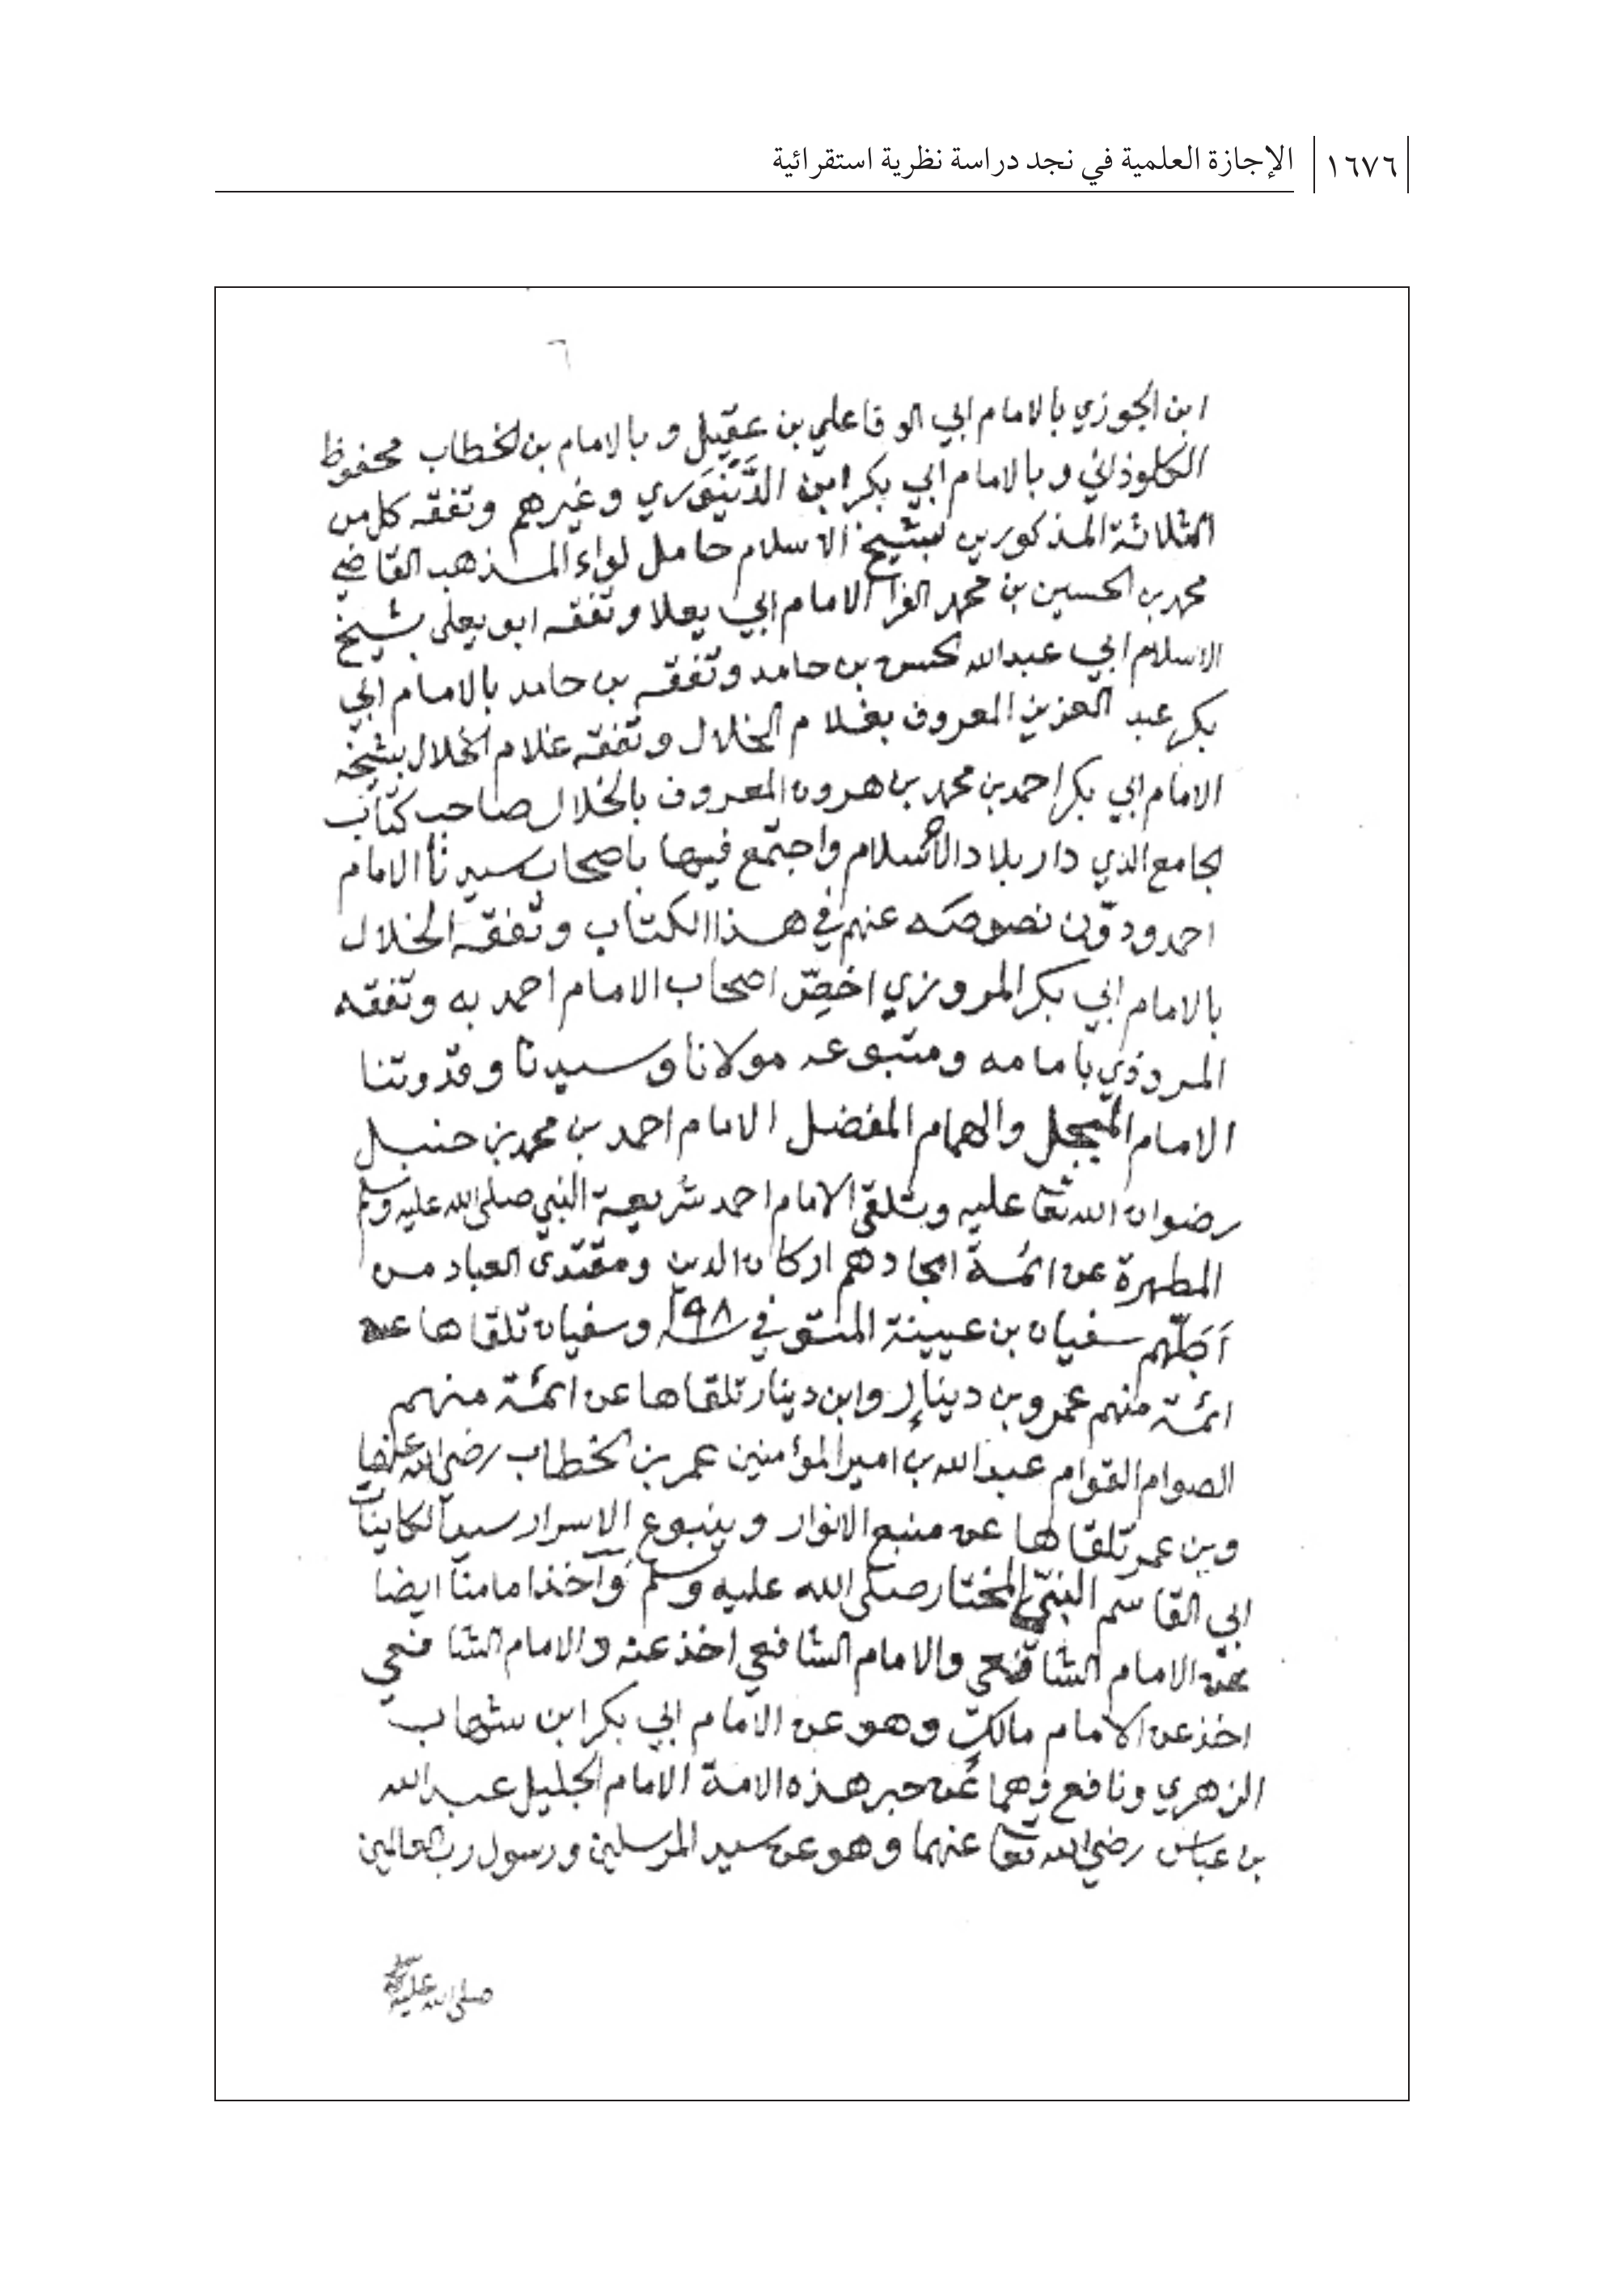 ١٦٧٦ الإجازة العلمية في نجد دراسة نظرية استقرائية
٦
ابن الجوزي بالامام ابي الوفا علي بن عقيل وبالامام بن الخطاب محفوظ
الكلوذاني وبالامام ابي بكر ابن الدَّيْنَوَري وغيرهم وتفقه كل من
الثلاثة المذكورين بشيخ الاسلام حامل لواء المذهب القاضي
محمد بن الحسين بن محمد الفرا الامام ابي يعلا وتفقه ابو يعلى بشيخ
الاسلام ابي عبدالله الحسن بن حامد وتفقه بن حامد بالامام ابي
بكر عبد العزيز المعروف بغلام الخلال وتفقه غلام الخلال بشيخه
الامام ابي بكر احمد بن محمد بن هرون المعروف بالخلال صاحب كتاب
الجامع الذي دار بلاد الاسلام واجتمع فيها باصحاب سيدنا الامام
احمد ودوّن نصوصه عنهم في هذا الكتاب وتفقه الخلال
بالامام ابي بكر المروزي اخصّ اصحاب الامام احمد به وتفقه
المروذي بامامه ومتبوعه مولانا وسيدنا وقدوتنا
الامام المبجل والهمام المفضل الامام احمد بن محمد بن حنبل
رضوان الله تعا عليه وتلقى الامام احمد شريعة النبي صلى الله عليه وسلم
المطهرة عن ائمة امجاد هم اركان الدين ومقتدى العباد من
اَجَلّهم سفيان بن عيينة المتوفي في ١٩٨ سنة وسفيان تلقاها عن
ائمة منهم عمرو بن دينار وابن دينار تلقاها عن ائمة منهم
الصوام القوام عبد الله بن امير المؤمنين عمر بن الخطاب رضي الله عنهما
وبن عمر تلقاها عن منبع الانوار وينبوع الاسرار سيد الكاينات
ابي القاسم النبيّ المختار صلى الله عليه وسلم وآخذ امامنا ايضا
عن الامام الشافعي والامام الشافعي اخذ عنه والامام الشافعي
اخذ عن الامام مالك وهو عن الامام ابي بكر ابن شهاب
الزهري ونافع وهما عن حبر هذه الامة الامام الجليل عبد الله
بن عباس رضي الله تعا عنهما وهو عن سيد المرسلين ورسول رب العالمين
صلى الله عليه وسلم